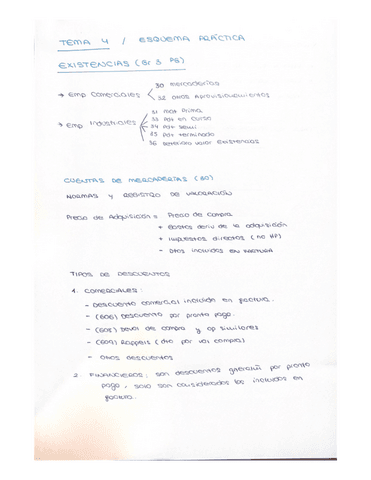 TEMA 4 / ESQUEMA PRÁCTICA
EXISTENCIAS (Gr 3 PG)
→ Emp Comerciales 30 mercaderías
32 otros Aprovisionamientos
→ Emp Industriales 31 mat Prima
33 Pdt en Curso
34 Pdt semi
35 Pdt terminado
36 Deterioro valor existencias
CUENTAS DE MERCADERÍAS (30)
NORMAS y REGISTRO DE VALORACIÓN
Precio de Adquisición = Precio de compra
+ Gastos deriv de la adquisición
+ Impuestos directos (no HP)
- Dtos incluidos en FACTURA
TIPOS DE DESCUENTOS
1. COMERCIALES:
- Descuento comercial incluido en factura.
- (606) Descuento por pronto pago.
- (608) Devol de compra y op similares
- (609) Rappels (dto por vol compra)
- Otros descuentos
2. FINANCIEROS: son descuentos por pronto
pago, solo son considerados los incluidos en
factura.